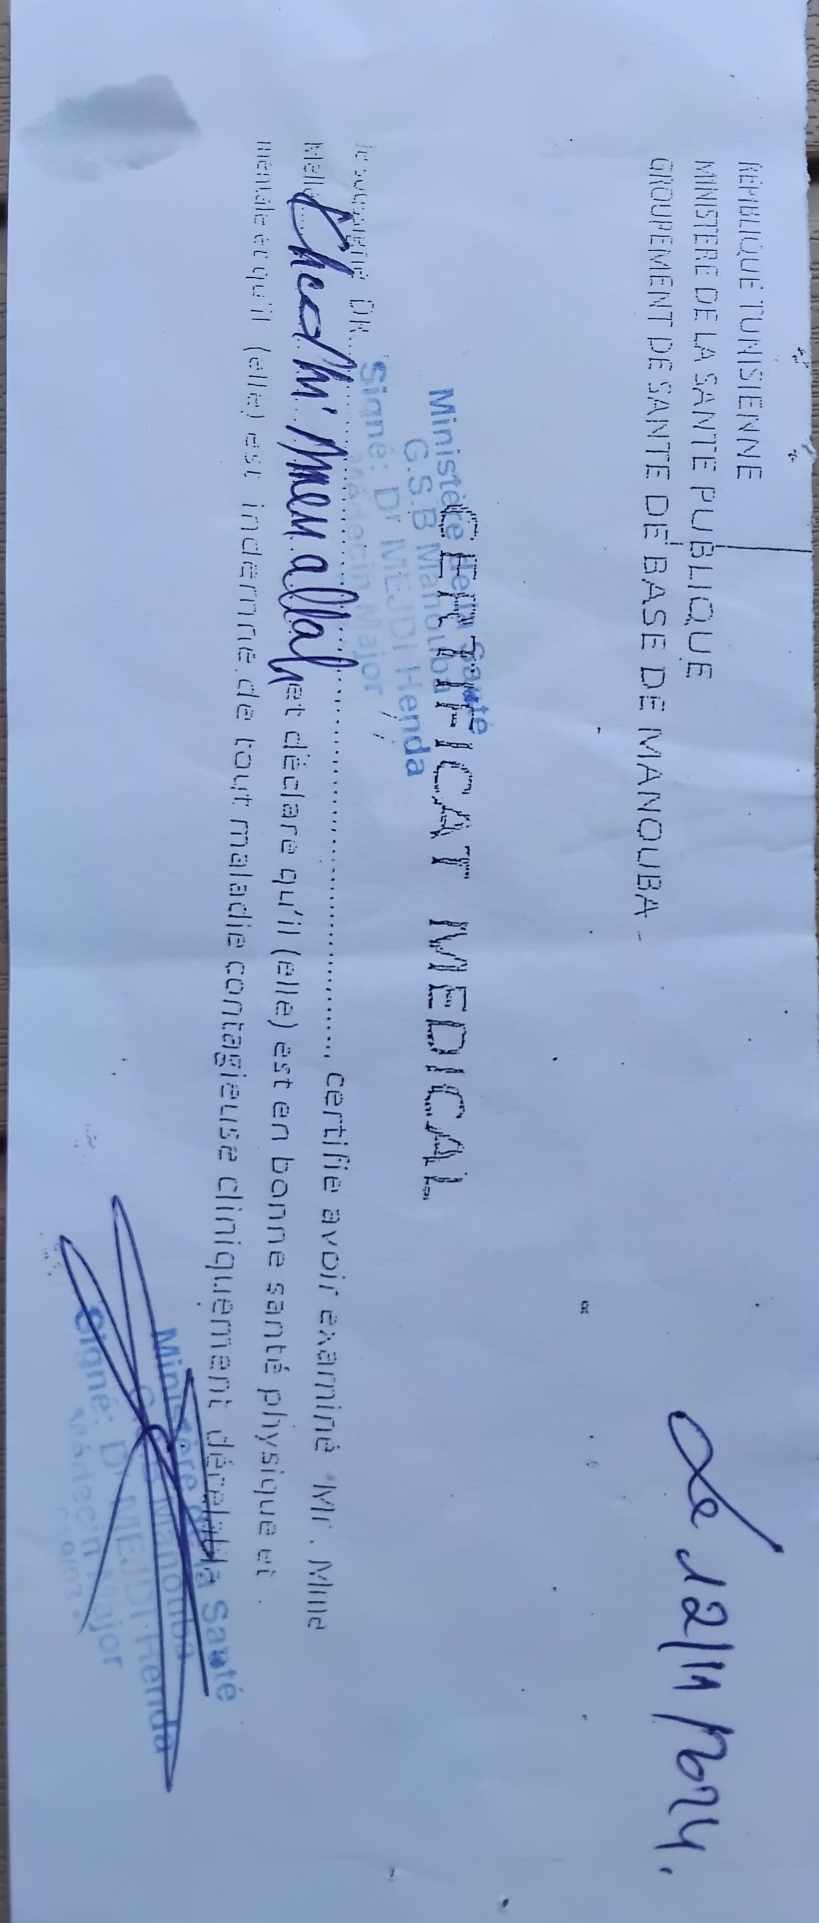 REPUBLIQUE TUNISIENNE
MINISTERE DE LA SANTE PUBLIQUE
GROUPEMENT DE SANTE DE BASE DE MANOUBA -
Le 12/11/2024.
CERTIFICAT MEDICAL
Ministère de la Santé
G.S.B Manouba
Signé: Dr MEJDI Henda
Médecin Major
Je soussigné DR..............................., certifie avoir examiné Mr. Mme
Melle Khedhi Amen allah et déclare qu'il (elle) est en bonne santé physique et
mentale et qu'il (elle) est indemne de tout maladie contagieuse cliniquement décelable
Ministère de la Santé
G.S.B Manouba
Signé: Dr MEJDI Henda
Médecin Major